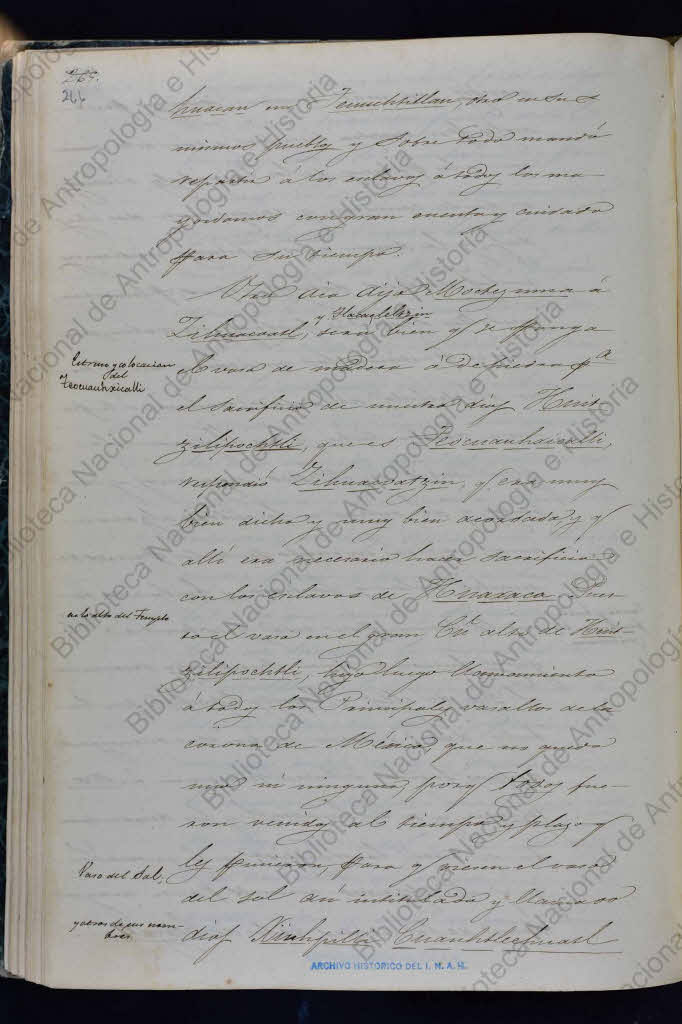 265.
266
huacan en Tenuchtitlan, otros en sus
mismos pueblos y sobre todo mandó
repartir á los esclavos á todos los ma
yordomos con gran cuenta y cuidado
para su tiempo.
Otro dia dijo Moctezuma á
y Tlacaeleltzin
Zihuacoatl, será bien q se ponga
el vaso de madera á de piedra pa
el sacrificio de nuestro dios Huit
zilipochtli, que es Teocuauhxicalli,
respondió Zihuacoatzin, q era muy
bien dicho y muy bien acordado, y q
allí era necesario hacer sacrificio
con los esclavos de Huaxaca. Pues
to el vaso en el gran Cú alto de Huit
zilipochtli, hizo luego llamamiento
á todos los Principales vasallos de la
corona de México, que no quedó
uno ni ninguno, porq todos fue
ron venidos al tiempo y plazo q
les pusieron, para q viesen el vaso
del sol así intitulado y llamado
dios Xiuhpilli Cuauhtlehuatl
Estreno y colocacion
del
Teocuauhxicalli
en lo alto del Templo
Vaso del Sol,
y otros de sus nom
bres.
ARCHIVO HISTORICO DEL I. N. A. H.
Biblioteca Nacional de Antropología e Historia